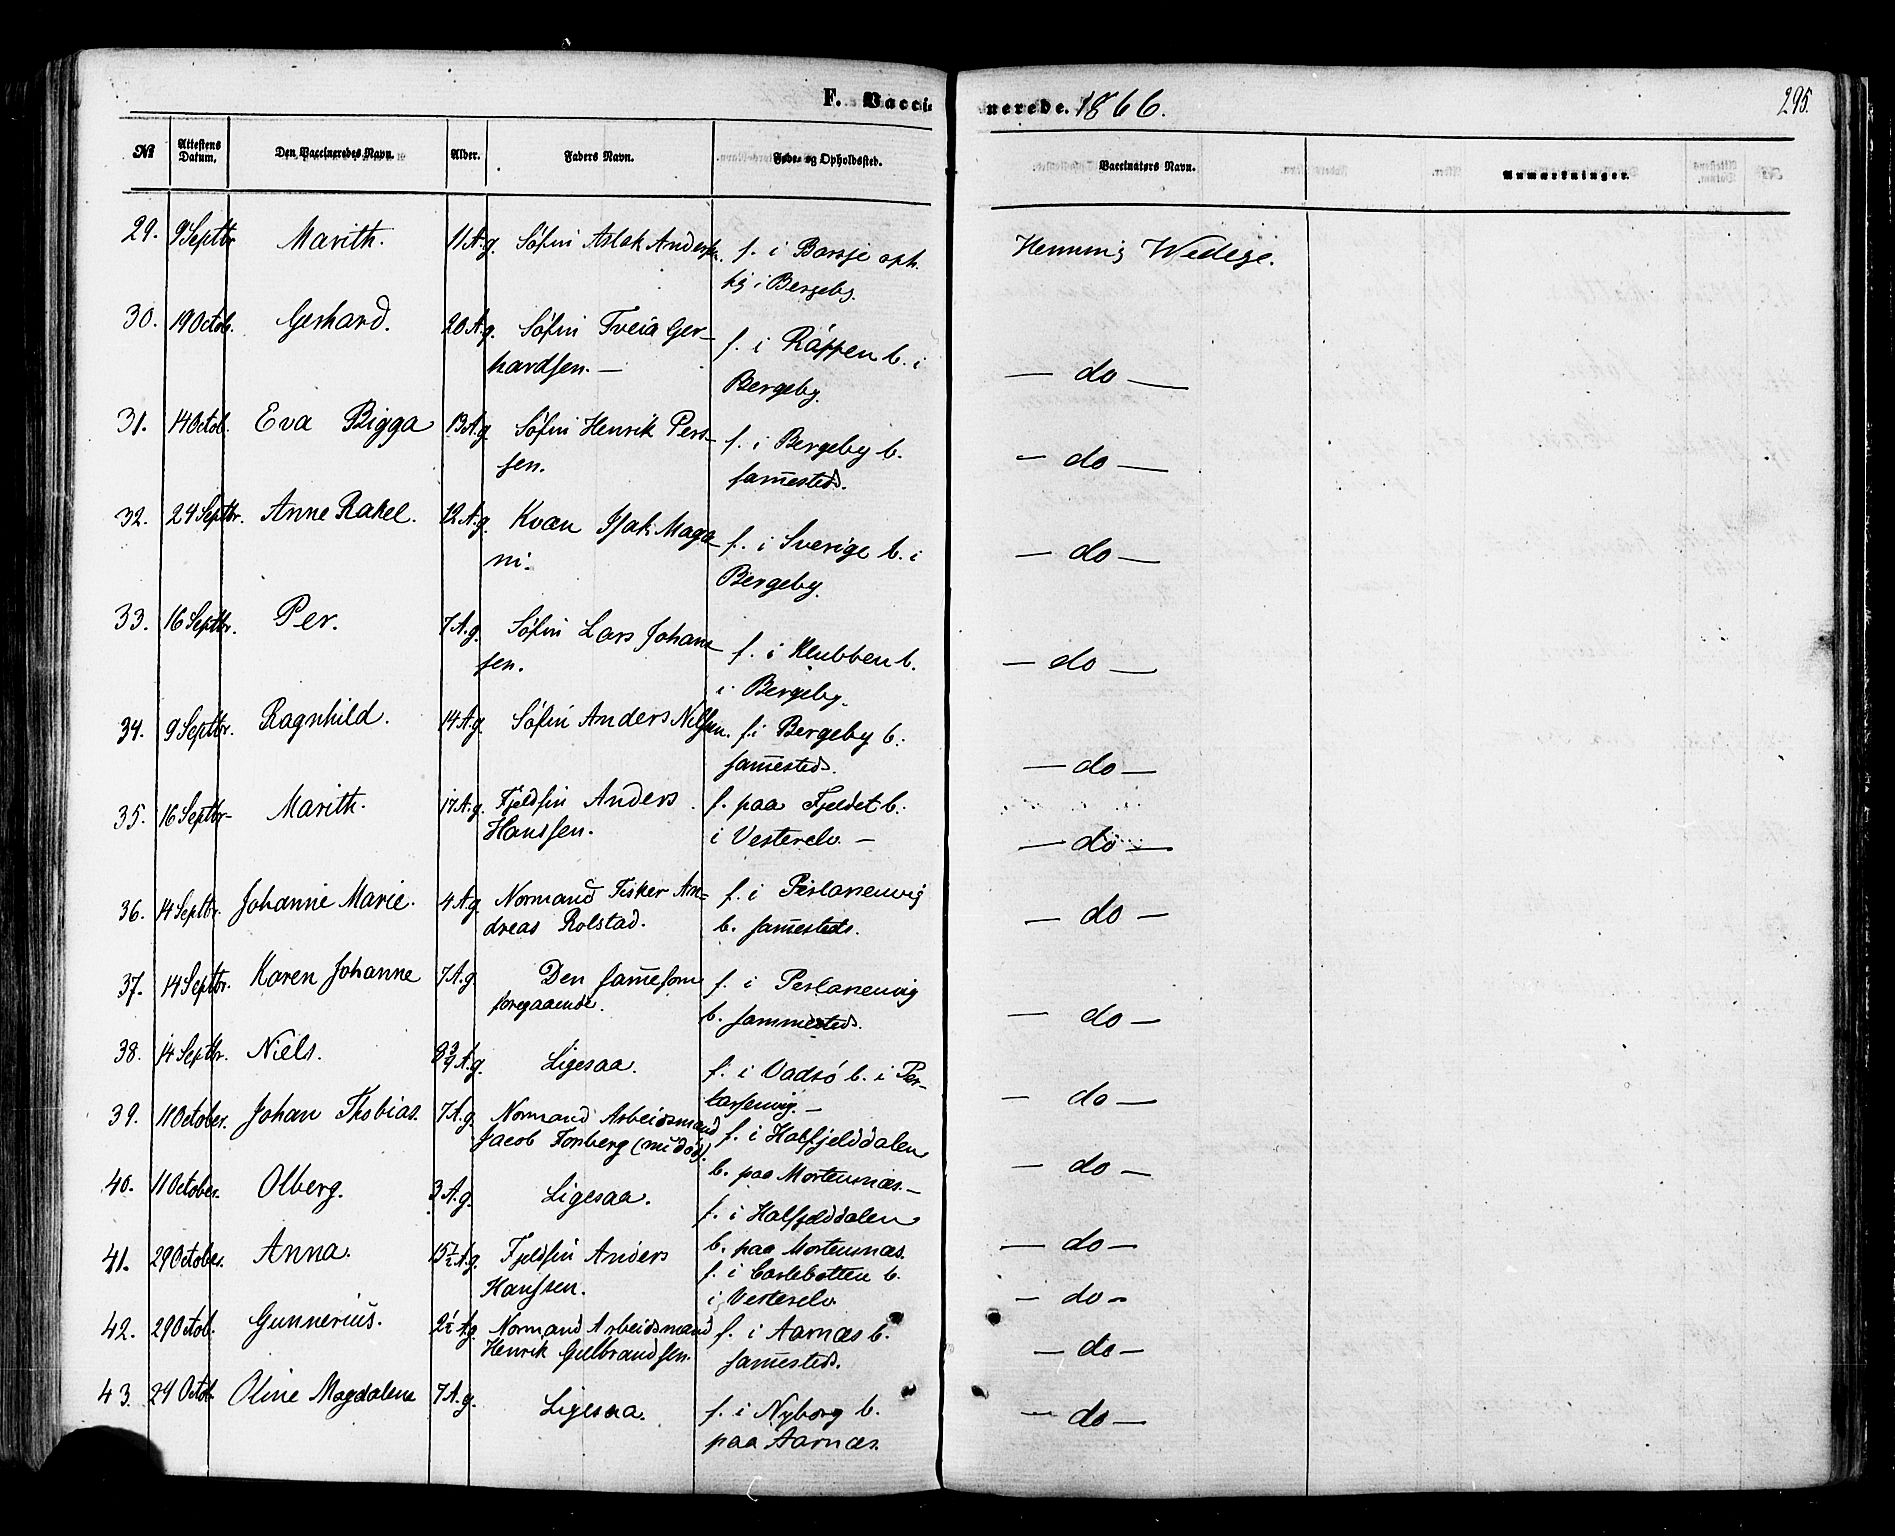 F. Vaccinerede. 1866.
295.
№ Attestens Datum. Den Vaccineredes Navn. Alder. Faders Navn. Føde- og Opholdssted. Vaccinatørs Navn. Anmærkninger.
29. 9 Septbr. Marith. 11 A. g. Søfin Aslak Andersen. f. i opholder
sig i Bergeby. Henning Wedege.
30. 19 Octob. Gerhard. 20 A. g. Søfin Tveia Ger-
hardsen. — f. i Ráppen b. i
Bergeby. — do —
31. 14 Octob. Eva Bigga 13 A. g. Søfin Henrik Pers-
sen. f. i Bergeby b.
sam̅esteds. — do —
32. 24 Septbr. Anne Rakel. 12 A. g. Kvæn Isak Maga-
ni. f. i Sverige b. i
Bergeby. — do —
33. 16 Septbr. Per. 7 A. g. Søfin Lars Johan-
sen. f. i Klubben b.
i Bergeby. — do —
34. 9 Septbr. Ragnhild. 14 A. g. Søfin Anders Nilsen. f. i Bergeby b.
sam̅esteds. — do —
35. 16 Septbr. Marith. 17 A. g. Fjeldfin Anders
Hanssen. f. paa Fjeldet b.
i Vesterelv. — — do —
36. 14 Septbr. Johanne Marie. 4 A. g. Normand Fisker An-
dreas Rolstad. f. i
b. sam̅esteds. — do —
37. 14 Septbr. Karen Johanne 7 A. g. Den sam̅e som
foregaaende. f. i
b. sammesteds. — do —
38. 14 Septbr. Niels. A. g. Ligesaa. f. i Vadsö b. i Per-
larsenvig. — — do —
39. 11 October. Johan Thobias. 7 A. g. Normand Arbeidsmand
Jacob Forberg (nu død). f. i Halfjelddalen
b. paa Mortensnæs. — — do —
40. 11 October. Olberg. 3 A. g. Ligesaa. f. i Halfjelddalen
b. paa Mortensnæs. — do —
41. 29 October. Anna. A. g. Fjeldfin Anders
Hanssen. f. i Carlebotten b.
i Vesterelv. — do —
42. 29 Octob. Gunnerius. 2½ A. g. Normand Arbeidsmand
Henrik Gulbrandsen. f. i Aarnæs b.
sam̅esteds. — do —
43. 29 Octob. Oline Magdalene 7 A. g. Ligesaa. f. i Nyborg b.
paa Aarnæs. — do —